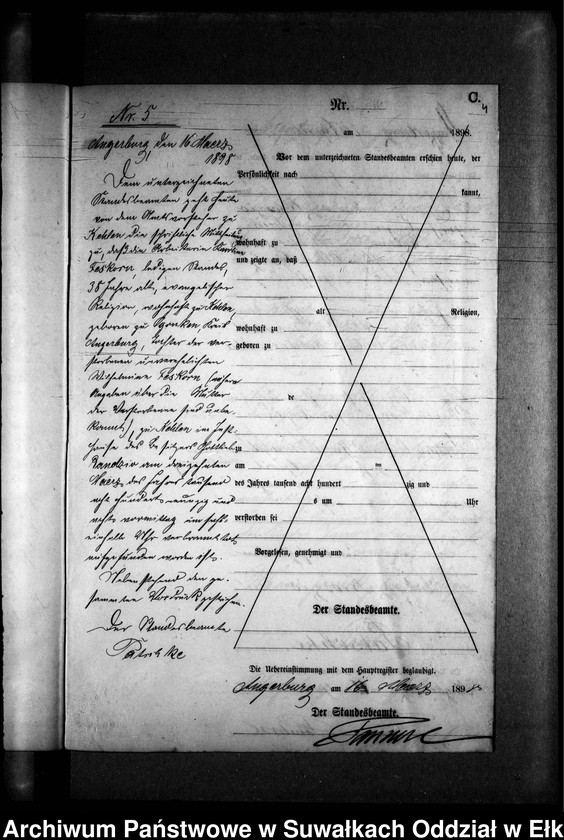 C.
4
Nr. 5
Nr.
Angerburg den 16 Maerz
1898
am 1898.
Vor dem unterzeichneten Standesbeamten erschien heute, der
Persönlichkeit nach
kannt,
Dem unterzeichneten
Standesbeamten geht heute
von dem Amtsvorsteher zu
Kehlen die schriftliche Mittheilung
zu, daß die Arbeiterin
Feskorn, ledigen Standes,
38 Jahre alt, evangelischer
Religion, wohnhaft zu Kehlen,
geboren zu Ogonken, Kreis
Angerburg, Tochter der ver-
storbenen unverehelichten
Wilhelmine Feskorn (nähere
Angaben über die Mutter
der Verstorbene sind unbe-
kannt), zu Kehlen im Inst-
hause des Besitzers Gottlieb
Randzio am dreizehnten
Maerz des Jahres tausend
acht hundert neunzig und
acht vormittag um
einhalb Uhr
aufgefunden worden ist.
Nebenstehend den ge-
sammten Vordruck gestrichen.
Der Standesbeamte
wohnhaft zu
und zeigte an, daß
alt Religion,
wohnhaft zu
geboren zu
de
zu
am
des Jahres tausend acht hundert zig und
s um Uhr
verstorben sei
Vorgelesen, genehmigt und
Der Standesbeamte.
Die Uebereinstimmung mit dem Hauptregister beglaubigt.
Angerburg am 16 Maerz 1898
Der Standesbeamte.
Archiwum Państwowe w Suwałkach Oddział w Ełk